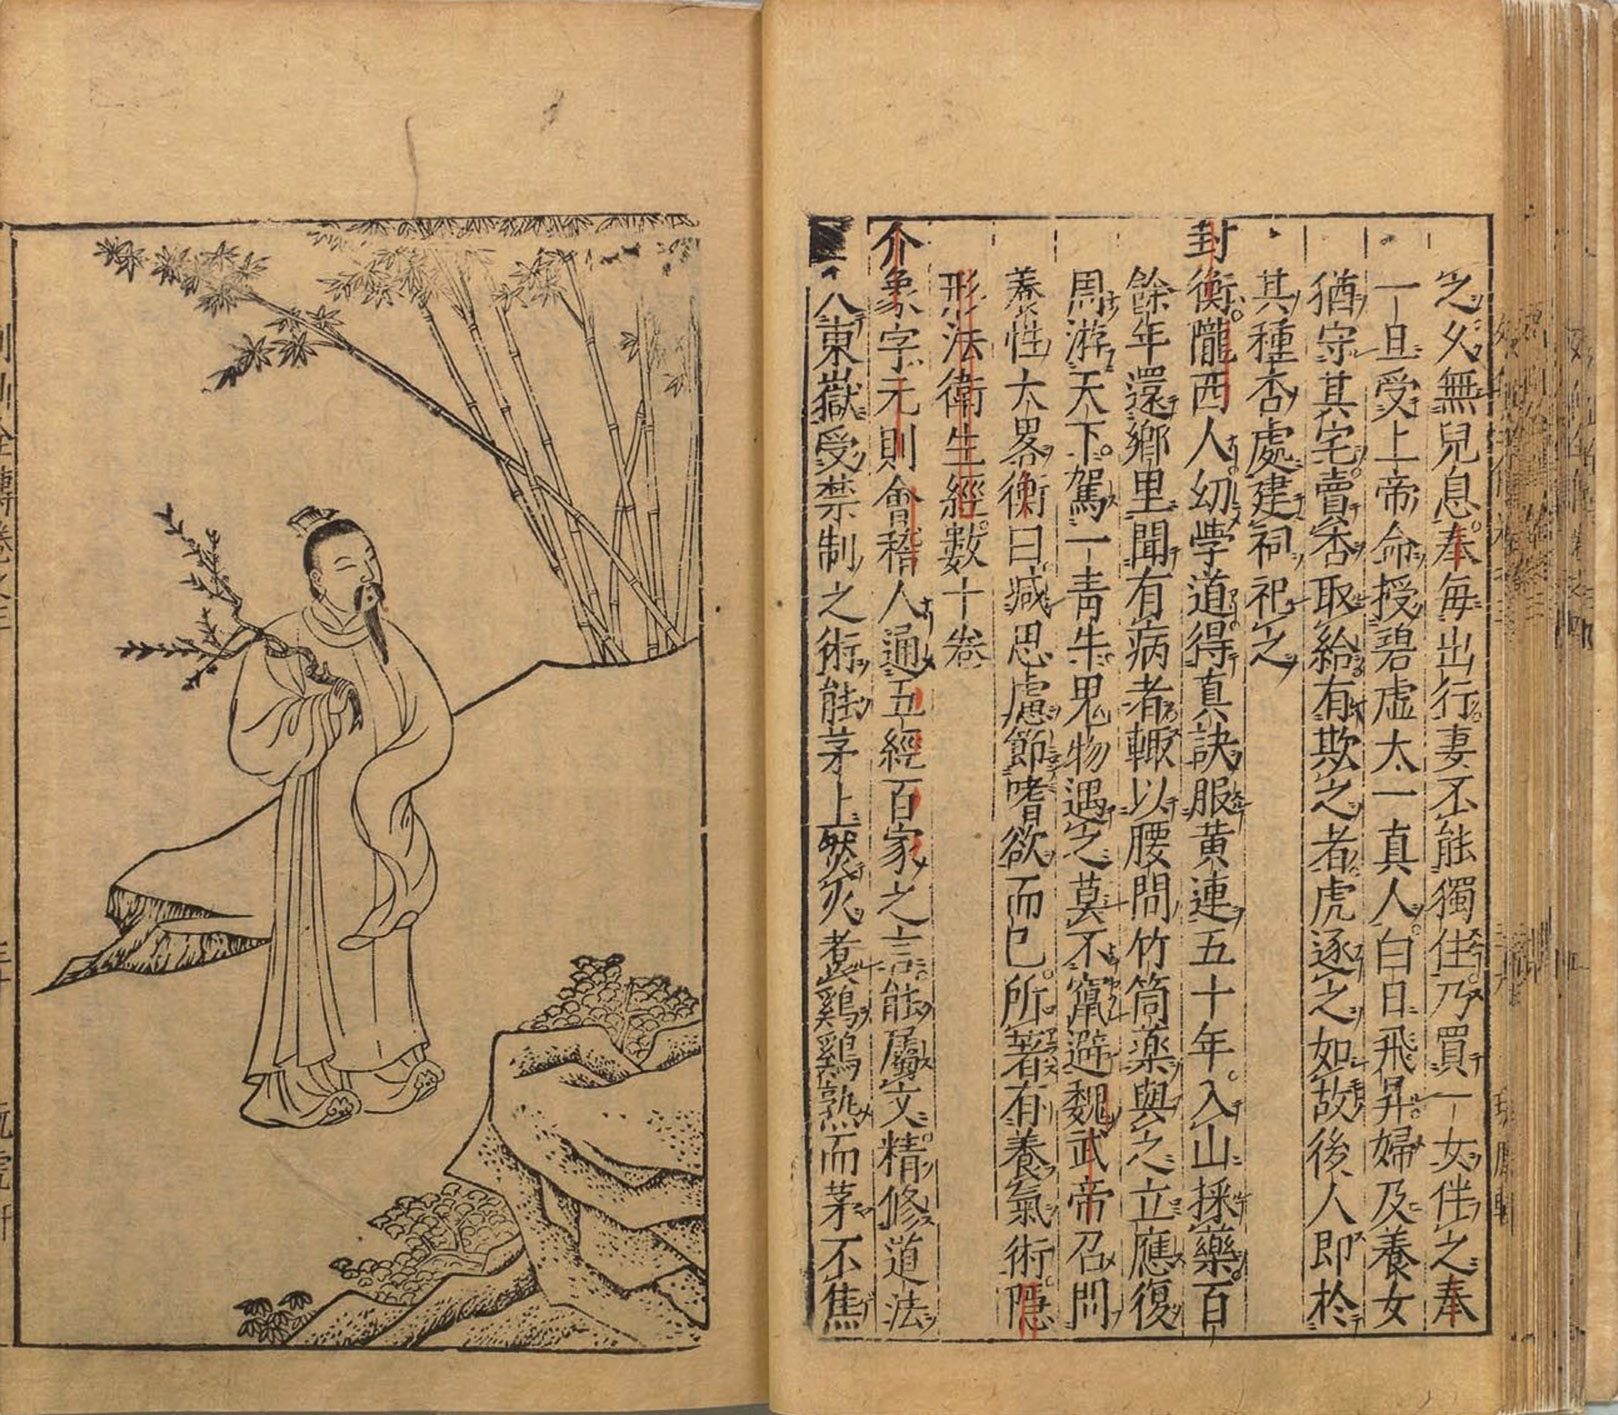 之久無兒息奉毎出行妻不能獨住乃買一女伴之奉
一旦受上帝命授碧虛太一真人白日飛昇婦及養女
猶守其宅賣杏取給有欺之者虎逐之如故後人即於
其種杏處建祠祀之
封衡隴西人幼學道得真訣服黃連五十年入山採藥百
餘年還鄉里聞有病者輙以腰問竹筒藥與之立應復
周游天下駕一青牛鬼物遇之莫不竄避魏武帝召問
養性大畧衡曰減思慮節嗜欲而已所著有養氣術隱
形法衛生經數十卷
介象字元則會稽人通五經百家之言能屬文精修道法
入東嶽受禁制之術能茅上燃火煮鷄鷄熟而茅不焦
列仙全傳卷之三